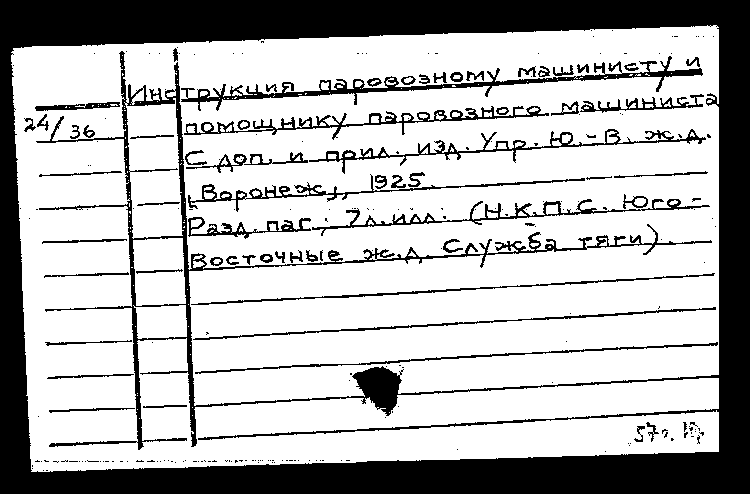 Инструкция паровозному машинисту и
24/36 помощнику паровозного машиниста
С доп. и прил., изд. Упр. Ю.-В. ж.д.
[Воронеж], 1925.
Разд. паг.; 7 л. илл. (Н.К.П.С. Юго-
Восточные ж.д. Служба тяги).
57г.